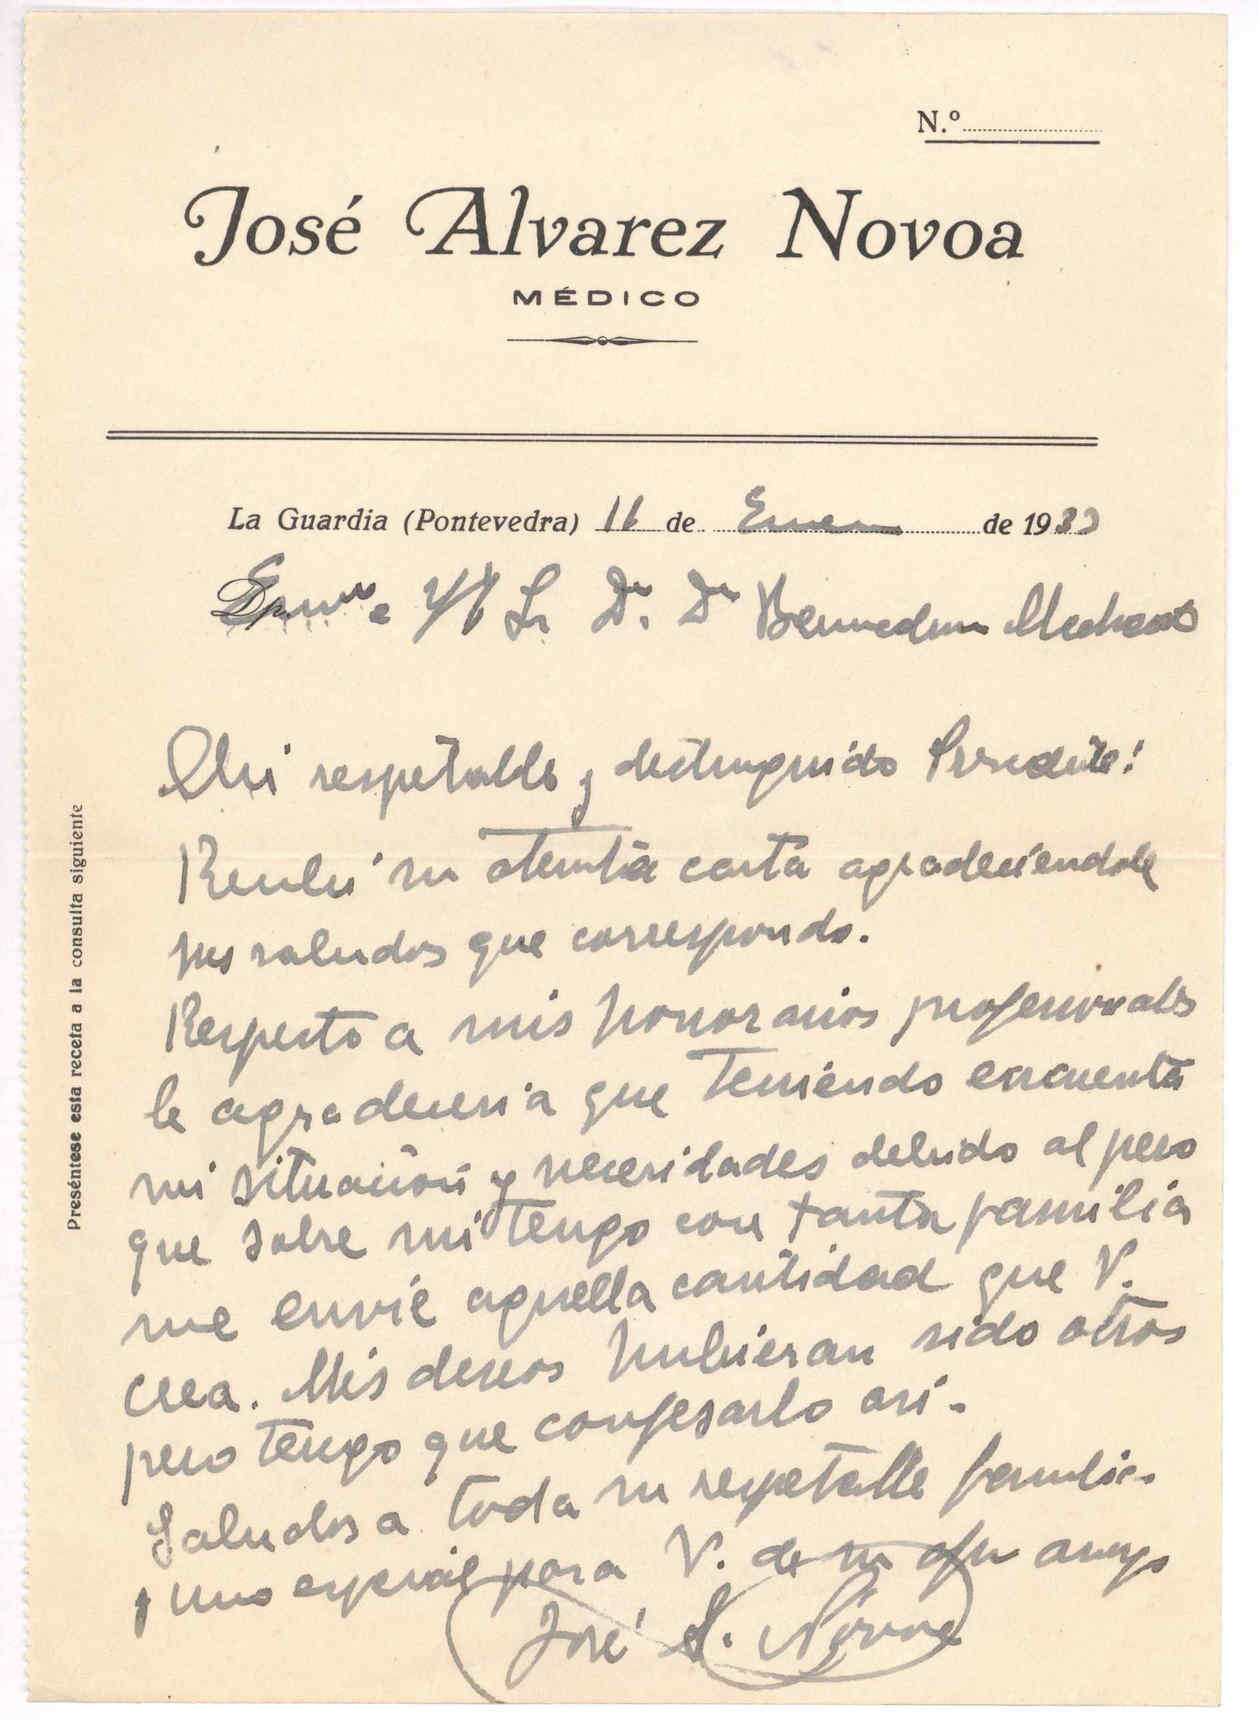 N.º
José Alvarez Novoa
MÉDICO
La Guardia (Pontevedra) 11 de Enero de 193
Exmo e Yl Sr Dn. Dn
Mi respetable y distinguido Presidente:
Recibí su atenta carta agradeciendole
sus saludos que correspondo.
Respecto a mis honorarios profesionales
le agradeceria que teniendo encuenta
mi situación y necesidades debido al peso
que sobre mi tengo con tanta familia
me envíe aquella cantidad que V.
crea. Mis deseos hubieran sido otros
pero tengo que confesarlo asi.
Saludos a toda su respetable familia
y uno especial para V. de su afmo amigo
José A. Novoa
Preséntese esta receta a la consulta siguiente